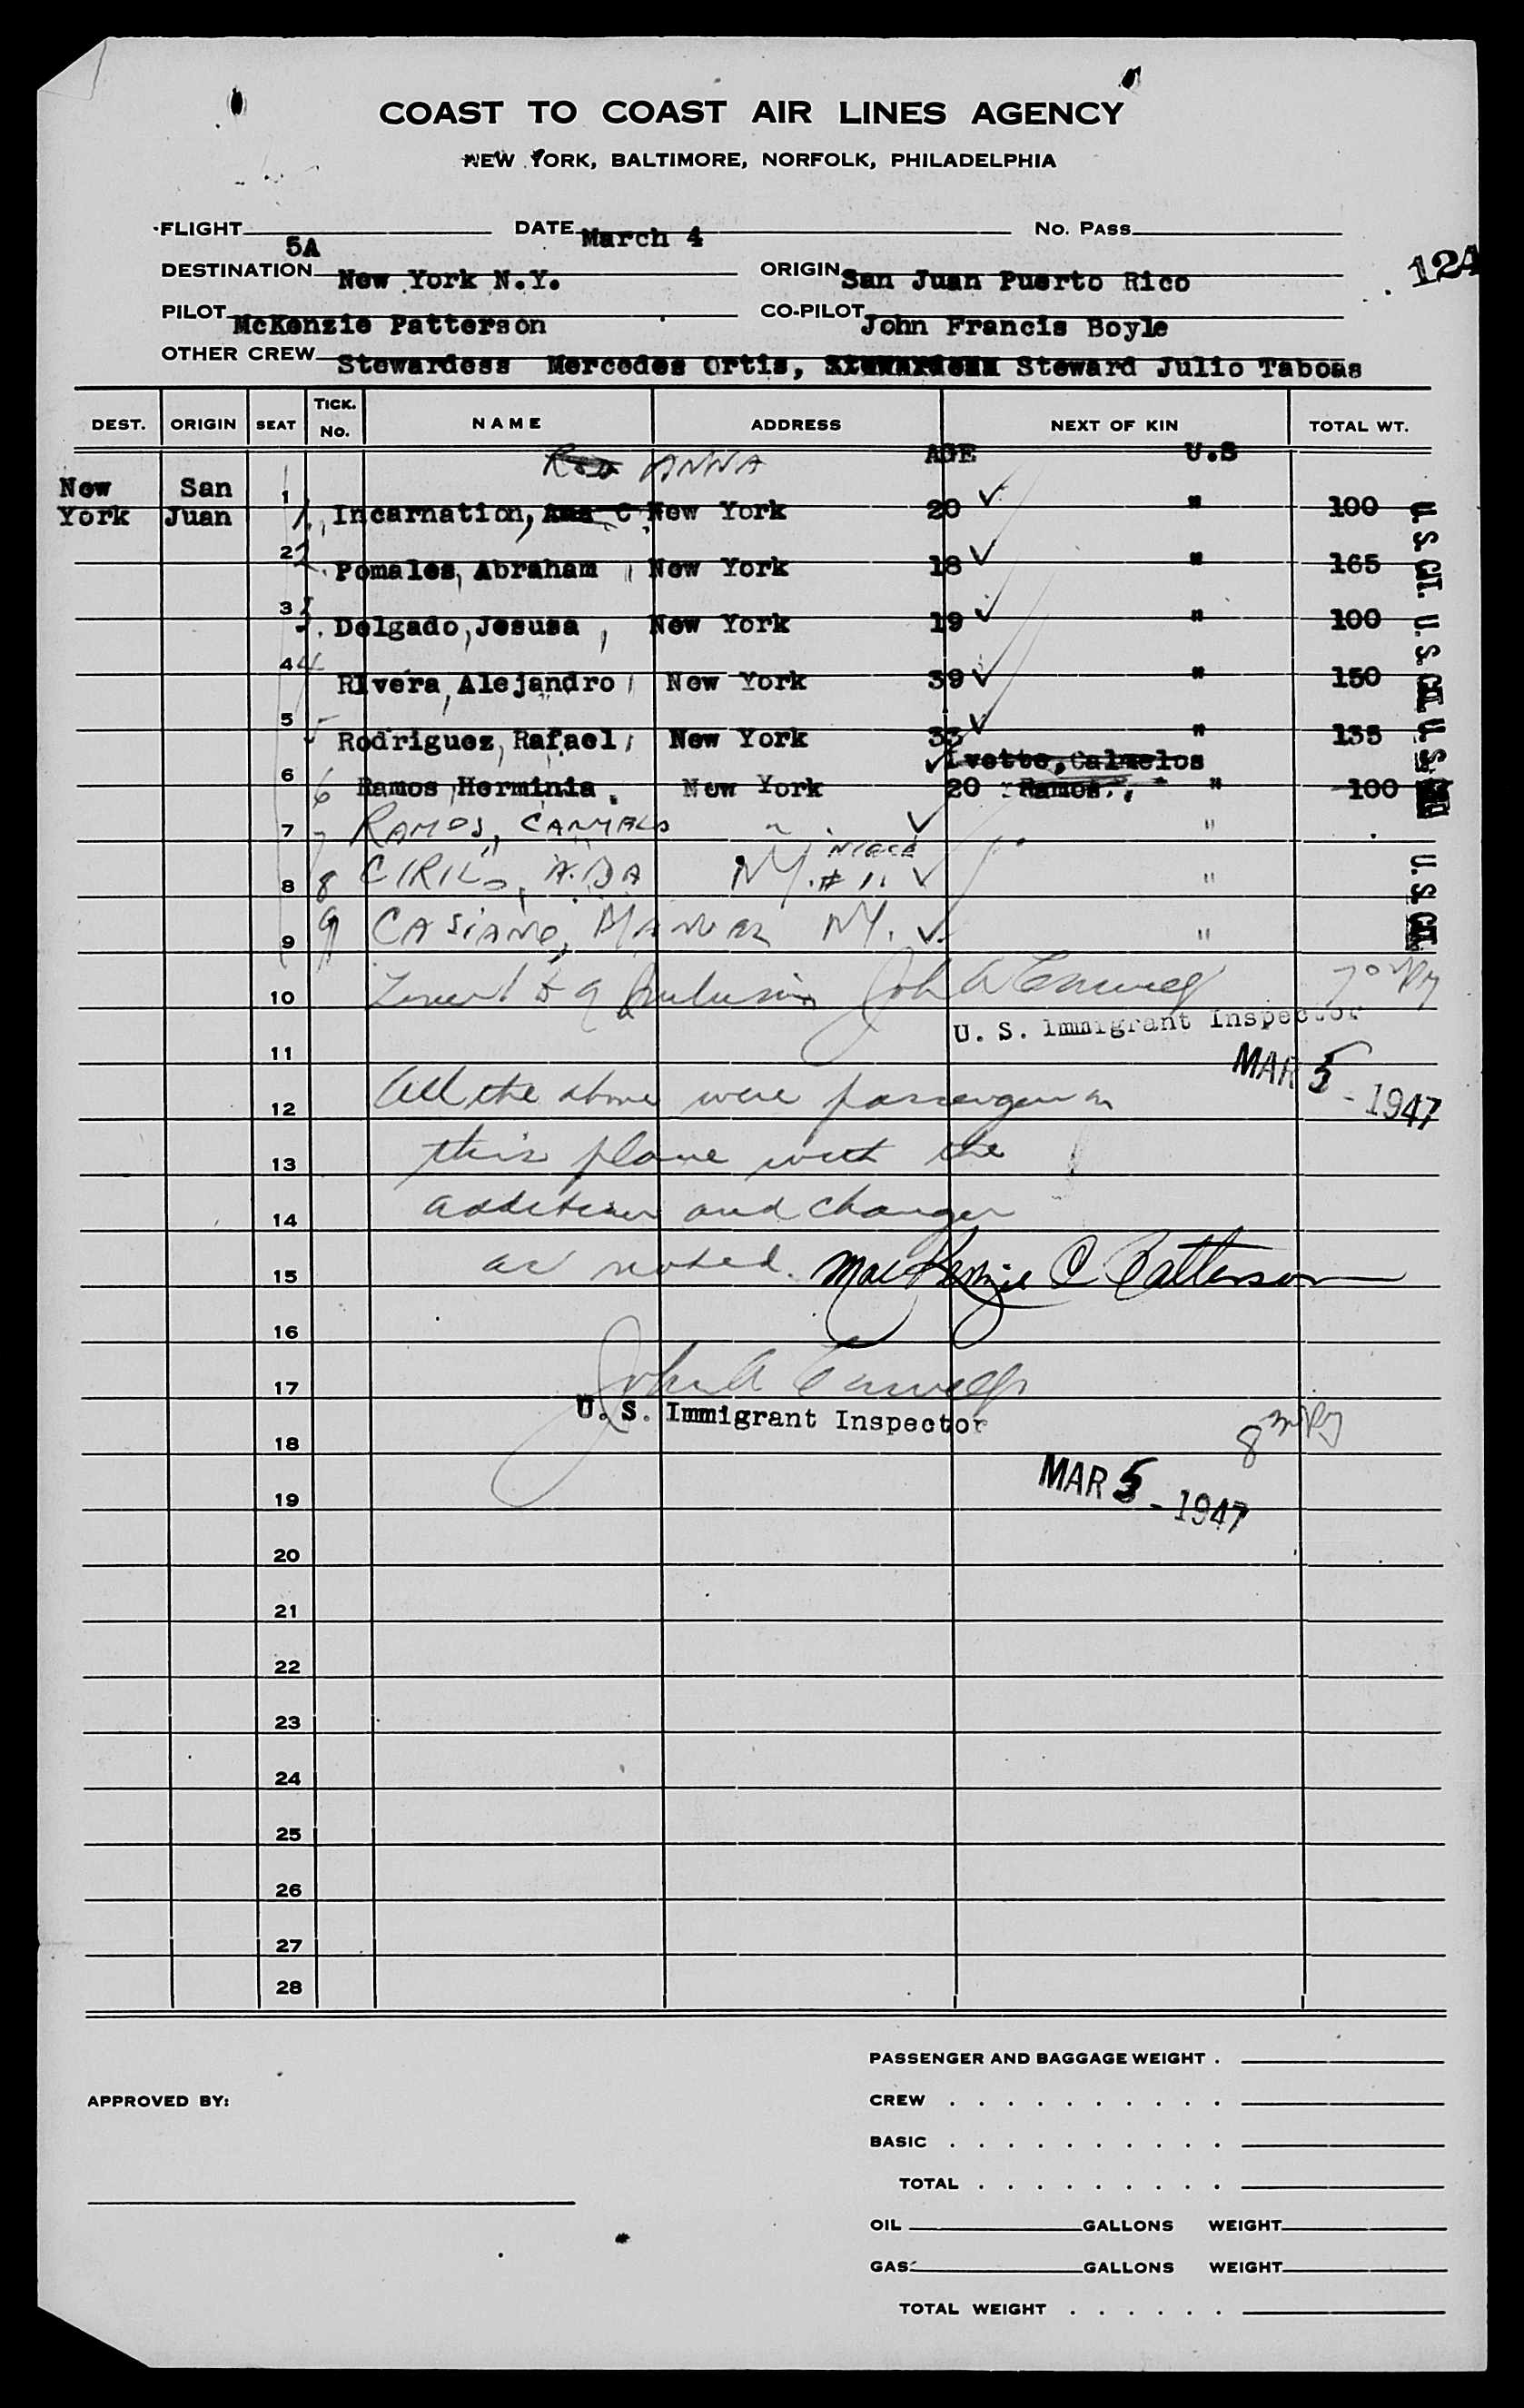 COAST TO COAST AIR LINES AGENCY
NEW YORK, BALTIMORE, NORFOLK, PHILADELPHIA
FLIGHT 5A DATE March 4 No. PASS
DESTINATION New York N.Y. ORIGIN San Juan Puerto Rico
124
PILOT McKenzie Patterson CO-PILOT John Francis Boyle
OTHER CREW Stewardess Mercedes Ortis, Steward Julio Taboas
DEST. ORIGIN SEAT TICK. No. NAME ADDRESS NEXT OF KIN TOTAL WT.
ANNA AGE U.S
New York San Juan 1 1. Incarnation, Ana C New York 20 ✓ " 100
2 2. Pomales, Abraham New York 18 ✓ " 165
3 3. Delgado, Jesusa, New York 19 ✓ " 100
4 4 RIvera, Alejandro New York 39 ✓ " 150
5 5 Rodriguez, Rafael New York 33 ✓ " 135
6 6 Ramos, Herminia. New York 20 Ramos., " 100
7 7 RAMOS, " ✓ "
8 8 CIRILO, AIDA NY. NIECE # 11 ✓ "
9 9 CASIANO, NY. ✓ "
10 Lines 1 to 9 inclusive
U. S. Immigrant Inspector
11 MAR 5 - 1947
12 All the above were passengers on
13 this plane with the
14 additions and changes
15 as noted. MacKenzie C Patterson
16
17
U. S. Immigrant Inspector
18
MAR 5 - 1947
19
20
21
22
23
24
25
26
27
28
U.S. CIT. U.S. CIT. U.S. CIT. U.S. CIT.
PASSENGER AND BAGGAGE WEIGHT .
APPROVED BY: CREW . . . . . . . . . .
BASIC . . . . . . . . . .
TOTAL . . . . . . . . .
OIL GALLONS WEIGHT
GAS GALLONS WEIGHT
TOTAL WEIGHT . . . . . .